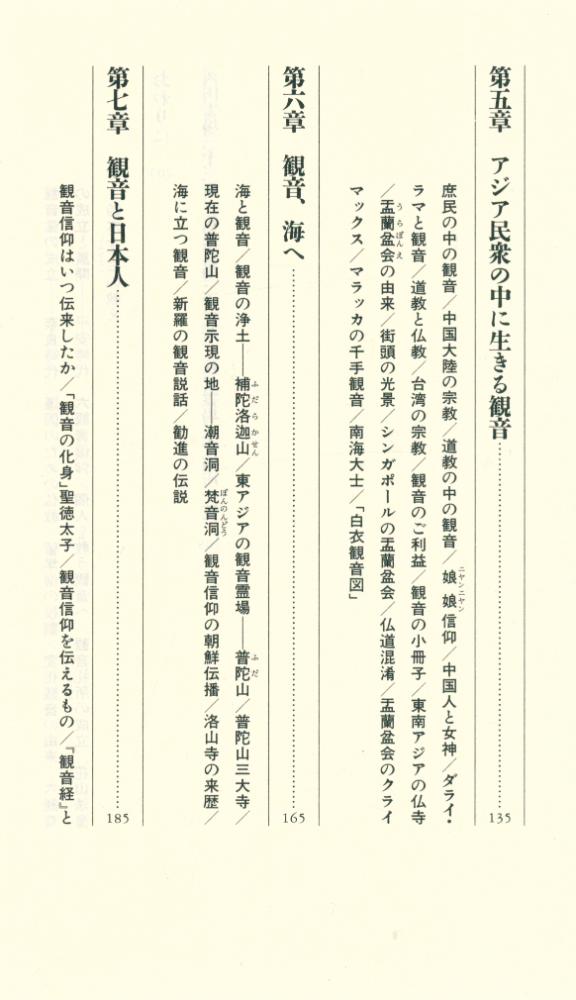 第五章　アジア民衆の中に生きる観音……135
庶民の中の観音／中国大陸の宗教／道教の中の観音／娘娘信仰／中国人と女神／ダライ・
ラマと観音／道教と仏教／台湾の宗教／観音のご利益／観音の小冊子／東南アジアの仏寺
／盂蘭盆会の由来／街頭の光景／シンガポールの盂蘭盆会／仏道混淆／盂蘭盆会のクライ
マックス／マラッカの千手観音／南海大士／「白衣観音図」
第六章　観音、海へ……165
海と観音／観音の浄土——補陀洛迦山／東アジアの観音霊場——普陀山／普陀山三大寺／
現在の普陀山／観音示現の地——潮音洞／梵音洞／観音信仰の朝鮮伝播／洛山寺の来歴／
海に立つ観音／新羅の観音説話／勧進の伝説
第七章　観音と日本人……185
観音信仰はいつ伝来したか／「観音の化身」聖徳太子／観音信仰を伝えるもの／『観音経』と